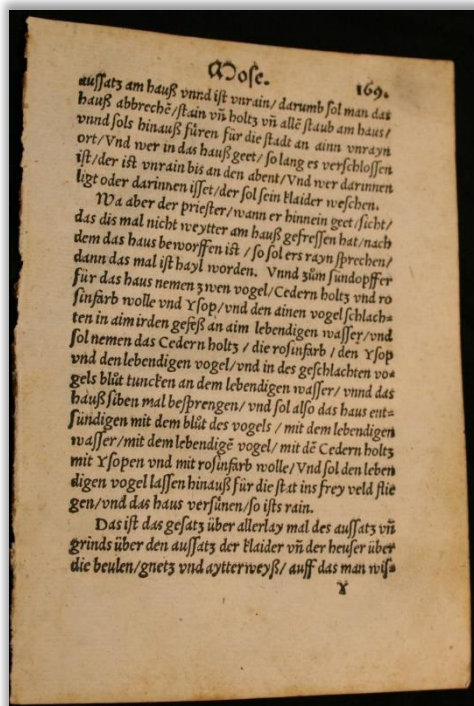 Mose.
169.
aussatz am hauß vnnd ist vnrain/ darumb sol man das
hauß abbrechē/stain vñ holtz vñ allē staub am haus/
vnnd sols hinauß füren für die stadt an ainn vnrayn
ort/Vnd wer in das hauß geet/ so lang es verschlossen
ist/der ist vnrain bis an den abent/Vnd wer darinnen
ligt oder darinnen isset/der sol sein klaider weschen.
Wa aber der priester/wann er hinnein geet/sicht/
das dis mal nicht weytter am hauß gefressen hat/nach
dem das haus beworffen ist/ so sol ers rayn sprechen/
dann das mal ist hayl worden. Vnnd zům sundopffer
für das haus nemen zwen vogel/Cedern holtz vnd ro
sinfarb wolle vnd Ysop/vnd den ainen vogel schlach=
ten in aim irden gefeß an aim lebendigen wasser/vnd
sol nemen das Cedern holtz / die rosinfarb / den Ysop
vnd den lebendigen vogel/vnd in des geschlachten vo=
gels blůt tuncken an dem lebendigen wasser/ vnnd das
hauß siben mal besprengen/ vnd sol also das haus ent=
sündigen mit dem blůt des vogels / mit dem lebendigen
wasser/mit dem lebendigē vogel/ mit dē Cedern holtz
mit Ysopen vnd mit rosinfarb wolle/Vnd sol den leben
digen vogel lassen hinauß für die stat ins frey veld flie
gen/vnd das haus versünen/so ists rain.
Das ist das gesatz über allerlay mal des aussatz vñ
grinds über den aussatz der klaider vñ der heuser über
die beulen/gnetz vnd aytterweyß/ auff das man wis=
Y